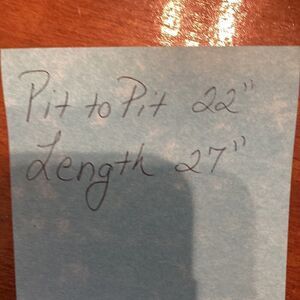 Pit to Pit 22"
Length 27"